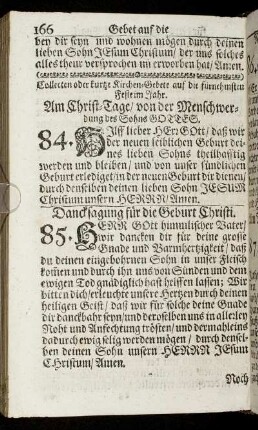 166 Gebet auf die
bey dir seyn und wohnen mögen durch deinen
lieben Sohn JEsum Christum / der uns solches
alles theur versprochen und erworben hat / Amen.
Collecten oder kurtze Kirchen-Gebete auf die fürnehmsten
Feste im Jahr.
Am Christ-Tage / von der Menschwer-
dung des Sohns GOTTES.
84. HIlff lieber HErr GOtt / daß wir
der neuen leiblichen Geburt dei-
nes lieben Sohns theilhafftig
werden und bleiben / und von unser sündlichen
Geburt erlediget / in der neuen Geburt dir dienen /
durch denselben deinen lieben Sohn JESUM
Christum unsern HERRN / Amen.
Dancksagung für die Geburt Christi.
85. HERR GOtt himmlischer Vater /
wir dancken dir für deine grosse
Gnade und Barmhertzigkeit / daß
du deinen eingebohrnen Sohn in unser Fleisch
kommen und durch ihn uns von Sünden und dem
ewigen Tod gnädiglich hast helffen lassen; Wir
bitten dich / erleuchte unsere Hertzen durch deinen
heiligen Geist / daß wir für solche deine Gnade
dir danckbahr seyn / und derselben uns in aller
Noht und Anfechtung trösten / und dermahleins
dadurch ewig selig werden mögen / durch densel-
ben deinen Sohn unsern HERRN JEsum
CHristum / Amen.
Noch